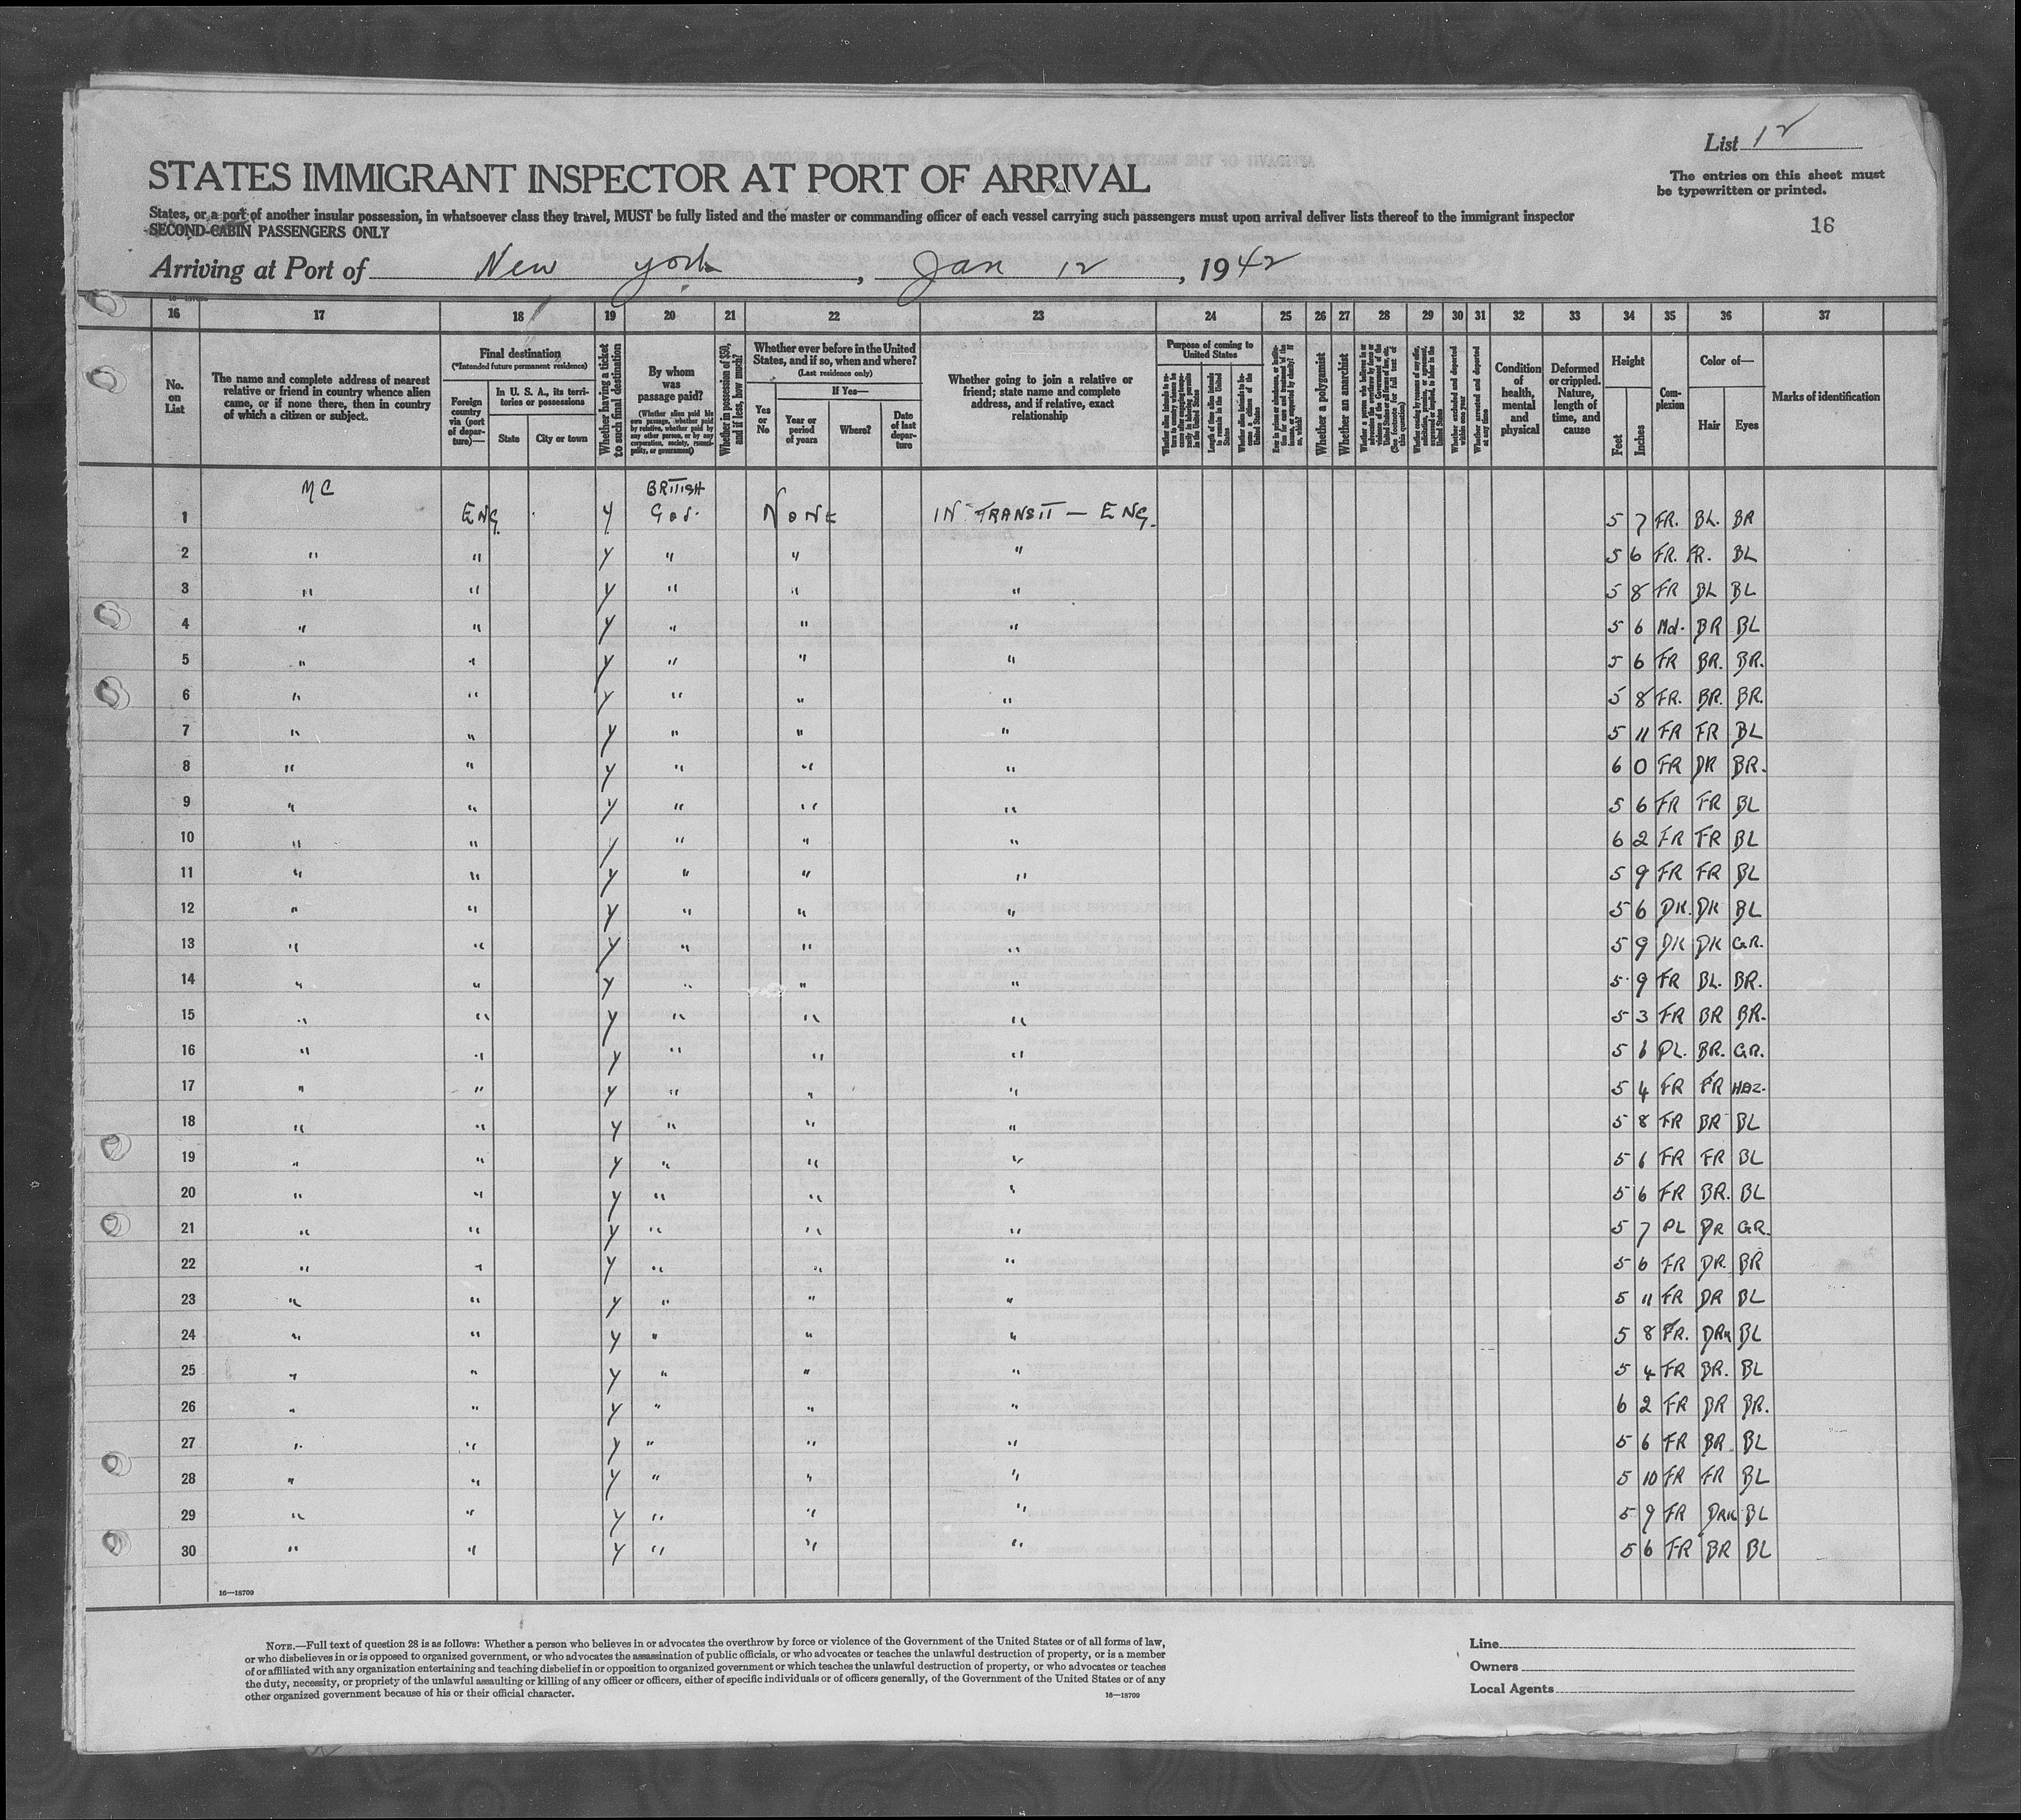 List 12
STATES IMMIGRANT INSPECTOR AT PORT OF ARRIVAL
The entries on this sheet must
be typewritten or printed.
States, or a port of another insular possession, in whatsoever class they travel, MUST be fully listed and the master or commanding officer of each vessel carrying such passengers must upon arrival deliver lists thereof to the immigrant inspector
SECOND-CABIN PASSENGERS ONLY
16
Arriving at Port of New york, Jan 12, 1942
16 17 18 19 20 21 22 23 24 25 26 27 28 29 30 31 32 33 34 35 36 37
No. on List
The name and complete address of nearest relative or friend in country whence alien came, or if none there, then in country of which a citizen or subject.
Final destination
(*Intended future permanent residence)
Foreign country via (port of departure)—
In U. S. A., its territories or possessions
State
City or town
Whether having a ticket to such final destination
By whom was passage paid?
(Whether alien paid his own passage, whether paid by relative, whether paid by any other person, or by any corporation, society, municipality, or government)
Whether in possession of $50, and if less, how much?
Whether ever before in the United States, and if so, when and where?
(Last residence only)
Yes or No
If Yes—
Year or period of years
Where?
Date of last departure
Whether going to join a relative or friend; state name and complete address, and if relative, exact relationship
Purpose of coming to United States
Length of time alien intends to remain in the United States
Whether alien intends to become a citizen of the United States
Whether a polygamist
Whether an anarchist
Whether excluded and deported within one year
Whether arrested and deported at any time
Condition of health, mental and physical
Deformed or crippled. Nature, length of time, and cause
Height
Feet
Inches
Complexion
Color of—
Hair
Eyes
Marks of identification
MC BRITISH
1 ENG. Y Gov. NONE IN TRANSIT — ENG. 5 7 FR. BL. BR
2 " " Y " " " 5 6 FR. FR. BL
3 " " Y " " " 5 8 FR BL BL
4 " " Y " " " 5 6 Md. BR BL
5 " " Y " " " 5 6 FR BR. BR.
6 " " Y " " " 5 8 FR. BR. BR.
7 " " Y " " " 5 11 FR FR BL
8 " " Y " " " 6 0 FR DR BR.
9 " " Y " " " 5 6 FR FR BL
10 " " Y " " " 6 2 FR FR BL
11 " " Y " " " 5 9 FR FR BL
12 " " Y " " " 5 6 DK. DK BL
13 " " Y " " " 5 9 DK DK GR.
14 " " Y " " " 5 9 FR BL. BR.
15 " " Y " " " 5 3 FR BR BR.
16 " " Y " " " 5 6 PL. BR. GR.
17 " " Y " " " 5 4 FR FR HAZ.
18 " " Y " " " 5 8 FR BR BL
19 " " Y " " " 5 6 FR FR BL
20 " " Y " " " 5 6 FR BR. BL
21 " " Y " " " 5 7 PL DR GR.
22 " " Y " " " 5 6 FR DR. BR
23 " " Y " " " 5 11 FR DR BL
24 " " Y " " " 5 8 FR. DRK BL
25 " " Y " " " 5 4 FR BR. BL
26 " " Y " " " 6 2 FR BR BR.
27 " " Y " " " 5 6 FR BR. BL
28 " " Y " " " 5 10 FR FR BL
29 " " Y " " " 5 9 FR DRK BL
30 " " Y " " " 5 6 FR BR BL
16—18709
NOTE.—Full text of question 28 is as follows: Whether a person who believes in or advocates the overthrow by force or violence of the Government of the United States or of all forms of law,
or who disbelieves in or is opposed to organized government, or who advocates the assassination of public officials, or who advocates or teaches the unlawful destruction of property, or is a member
of or affiliated with any organization entertaining and teaching disbelief in or opposition to organized government or which teaches the unlawful destruction of property, or who advocates or teaches
the duty, necessity, or propriety of the unlawful assaulting or killing of any officer or officers, either of specific individuals or of officers generally, of the Government of the United States or of any
other organized government because of his or their official character.
16—18709
Line
Owners
Local Agents